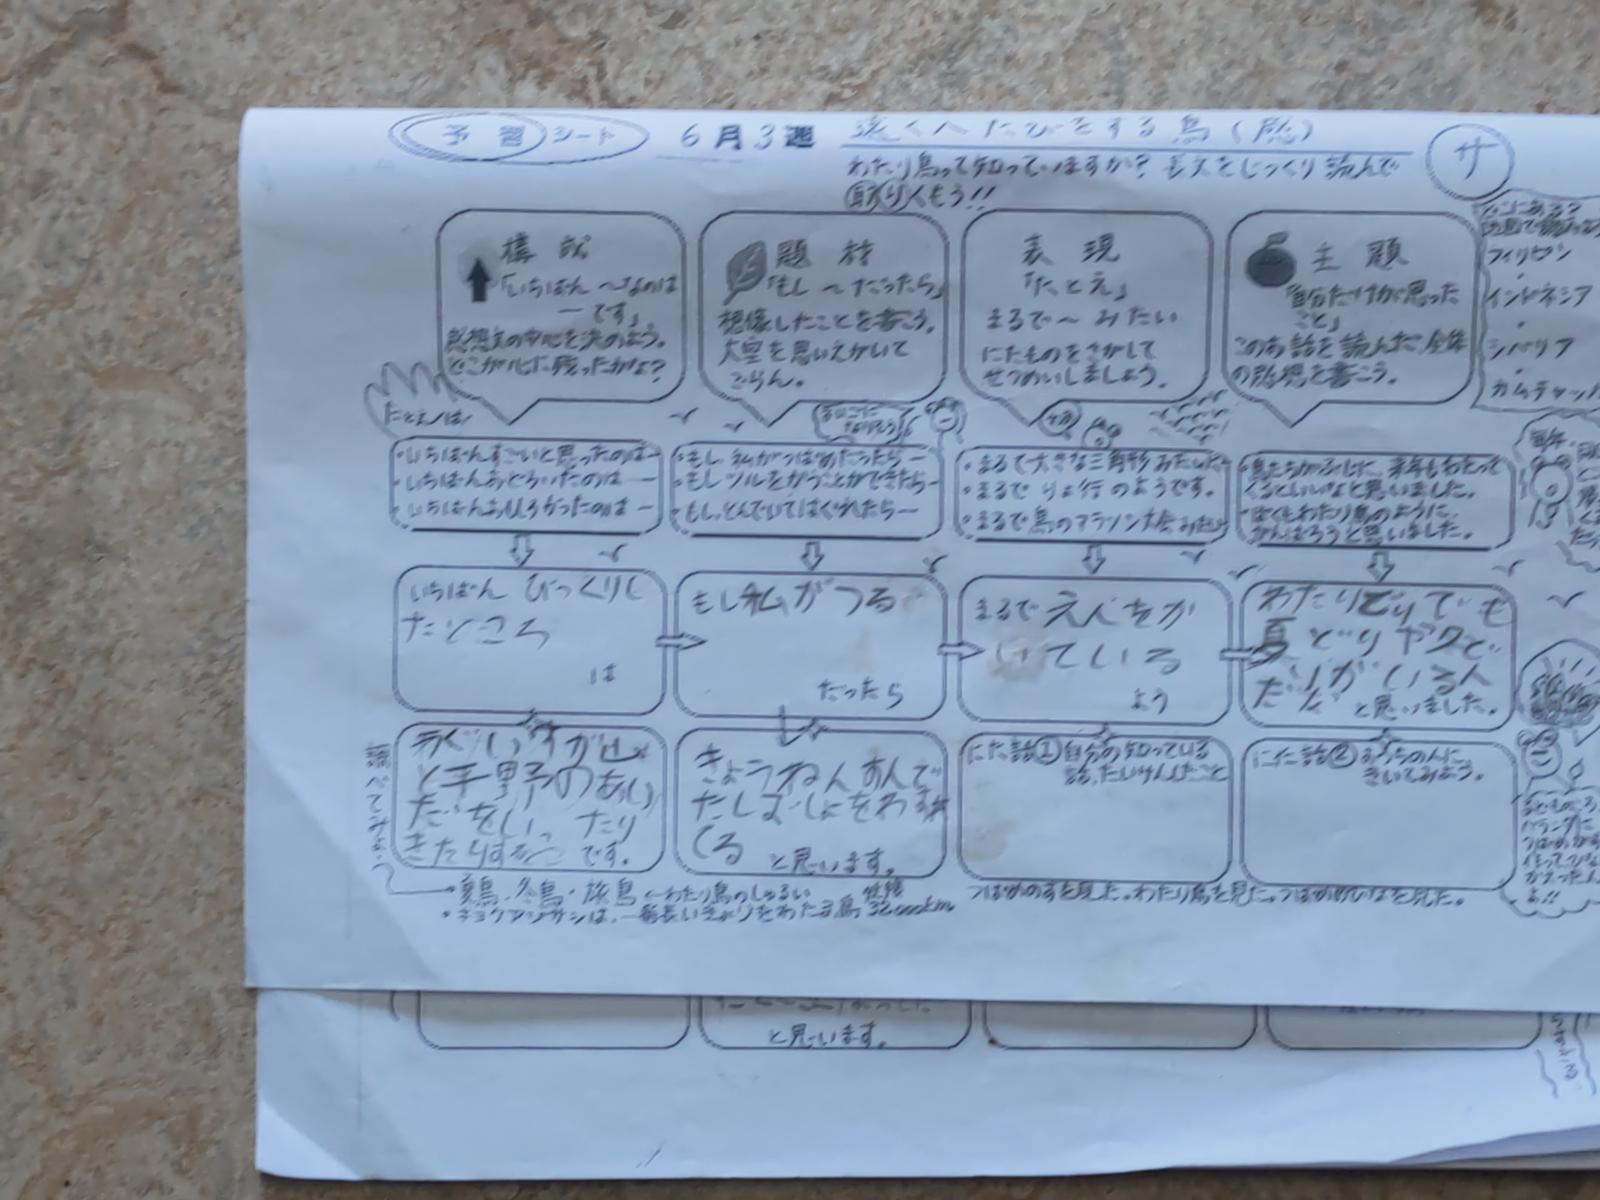 予習シート 6月3週 遠くへたびをする鳥(感) サ
わたり鳥って知っていますか? 長文をじっくり読んで
取りくもう!!
構成
「いちばん〜なのは
ーです」
感想文の中心を決めよう。
どこが心に残ったかな?
題材
「もし〜だったら」
想像したことを書こう。
大空を思いえがいて
ごらん。
表現
「たとえ」
まるで〜みたい
にたものをさがして
せつめいしましょう。
主題
「自分だけが思った
こと」
このお話を読んだ全体
の感想を書こう。
フィリピン
・
インドネシア
・
シベリア
・
カムチャッカ
たとえば
・いちばんすごいと思ったのはー
・いちばんおどろいたのはー
・いちばんおもしろかったのはー
・もし私がつばめだったらー
・もしツルをかうことができたらー
・もし、とんでいてはぐれたらー
・まるで大きな三角形みたいだ
・まるでりょ行のようです。
・まるで鳥のマラソン大会みたい
・鳥たちがぶじに、来年もわたって
くるといいなと思いました。
・ぼくもわたり鳥のように、
がんばろうと思いました。
いちばん びっくりし
たところ
は
もし私がつる
だったら
まるで えんをか
いている
よう
わたりどりでも
夏どりや冬ど
りがいるん
だなと思いました。
うぐいすが山
と平野のあい
だをいったり
きたりする
です。
きょうねんすんで
たしばしょをわすれ
てる
と思います。
にた話① 自分の知っている
話、たいけんしたこと
にた話② おうちの人に
きいてみよう。
調べてみよう
・夏鳥・冬鳥・旅鳥←わたり鳥のしゅるい
・キョクアジサシは、一番長いきょりをわたる鳥 32000km
つばめのすを見た。わたり鳥を見た。つばめのひなを見た。
と思います。